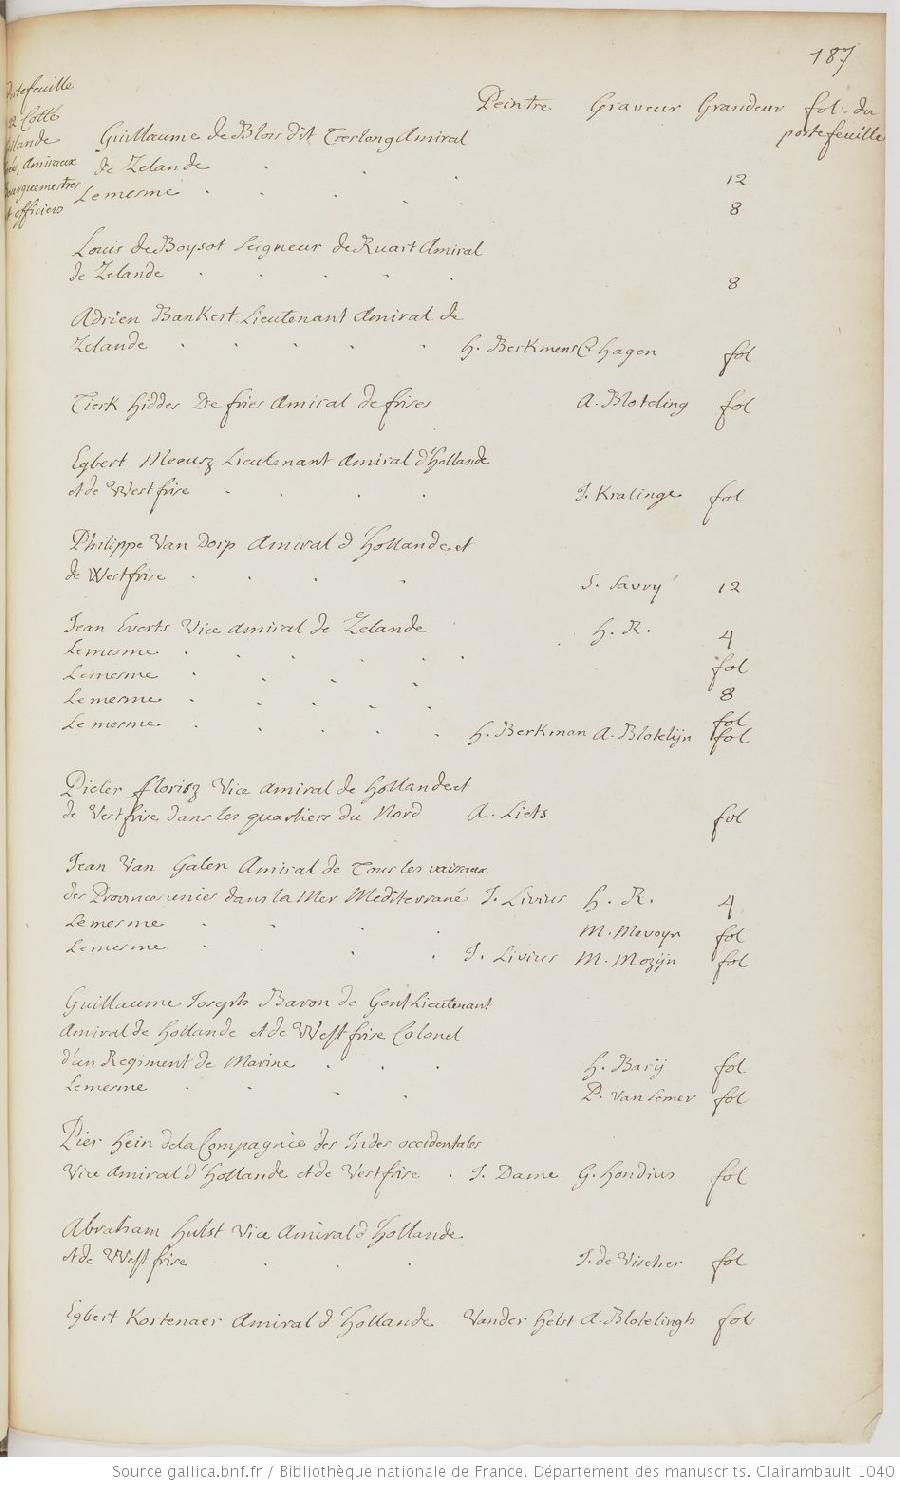 187
Peintre. Graveur Grandeur fol. du
portefeuille
Cotte
Amiraux
officiers
Guillaume de Blois dit Treslong Amiral
de Zelande
12
Lemesme
8
Louis de Boysot Seigneur de Ruart Amiral
de Zelande 8
Adrien Bankert Lieutenant Amiral de
Zelande H. Berkmens C hagen fol
Tierk hiddes De fries Amiral de frises A. Bloteling fol
Egbert Meousz Lieutenant Amiral d'hollande
et de Westfrise J. Kralinge fol
Philippe Van Dorp Amiral d'hollande et
de Westfrise S. Savry 12
Jean Everts Vice Amiral de Zelande H. R. 4
Lemesme fol
Lemesme 8
Lemesme fol
Lemesme H. Berkman A. Blotelijn fol
Pieter florisz Vice Amiral de hollande et
de Vestfrise dans les quartiers du Nord A. Liets fol
Jean Van Galen Amiral de Tous les vaisseaux
des Provinces unies dans la Mer Mediterrané J. Livius H. R. 4
Lemesme M. Mouoyn fol
Lemesme J. Livius M. Mozijn fol
Guillaume Joseph Baron de Gent Lieutenant
Amiral de hollande et de Westfrise Colonel
d'un Regiment de Marine H. Barij fol
Lemesme P. van Somer fol
Pier hein de la Compagnie des Indes occidentales
Vice Amiral d'hollande et de Vestfrise J. Dame G. hondius fol
Abraham hulst Vice Amiral d'hollande
et de Westfrise J. de Vischer fol
Egbert Kortenaer Amiral d'hollande Vander helst A. Blotelingh fol
Source gallica.bnf.fr / Bibliothèque nationale de France. Département des manuscrits. Clairambault 1040